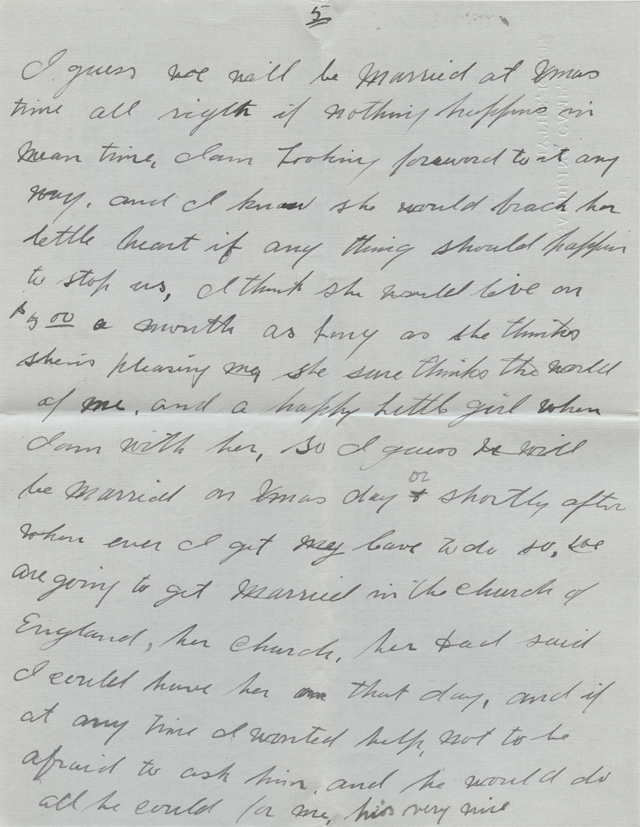 5
I guess we will be Married at Xmas
time all rigth if nothing happins in
Mean time, I am Looking foreword to it any
way, and I know she would brack her
little heart if any thing should happin
to stop us, I think she would live on
$5 00 a month as long as she thinks
she is pleasing me, she sure thinks the world
of me, and a happy little girl when
I am with her, so I guess we will
be Married on Xmas day or shortly after
when ever I get my leave to do so, we
are going to get Married in the church of
England, her church, her Dad said
I could have her on that day, and if
at any time I wanted help, not to be
afraid to ask him, and he would do
all he could for me, his very nice